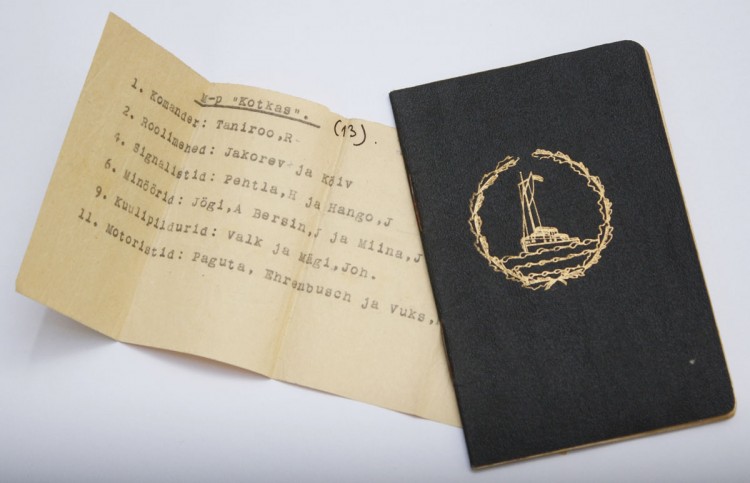 M-p "Kotkas".
(13).
1. Komander: Taniroo,R.
2. Roolimehed: Jakorev ja Kõiv
4. Signalistid: Pehtla,H ja Hango,J
6. Minöörid: Jõgi,A Bersin,J ja Miina,J
9. Kuulipildurid: Valk ja Mägi,Joh.
11. Motoristid: Paguta, Ehrenbusch ja Vuks,